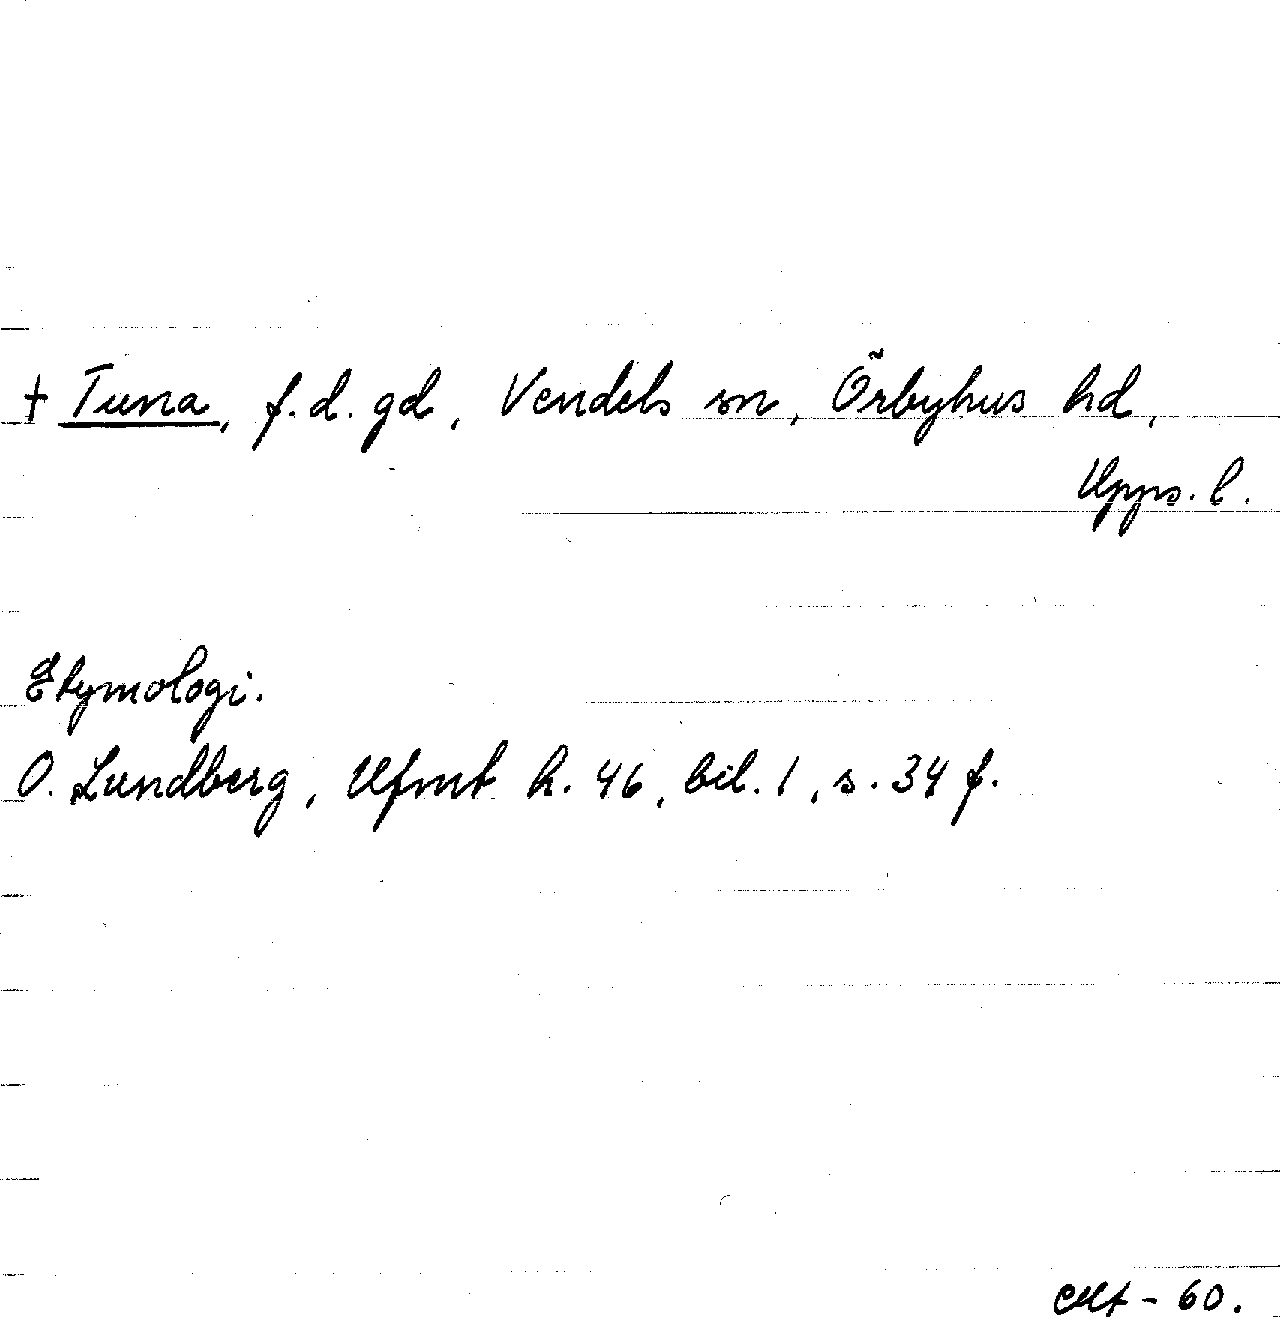 + Tuna, f.d. gd, Vendels sn, Örbyhus hd,
Upps. l.
Etymologi.
O. Lundberg, Ufmt h. 46, bil. 1, s. 34 f.
- 60.